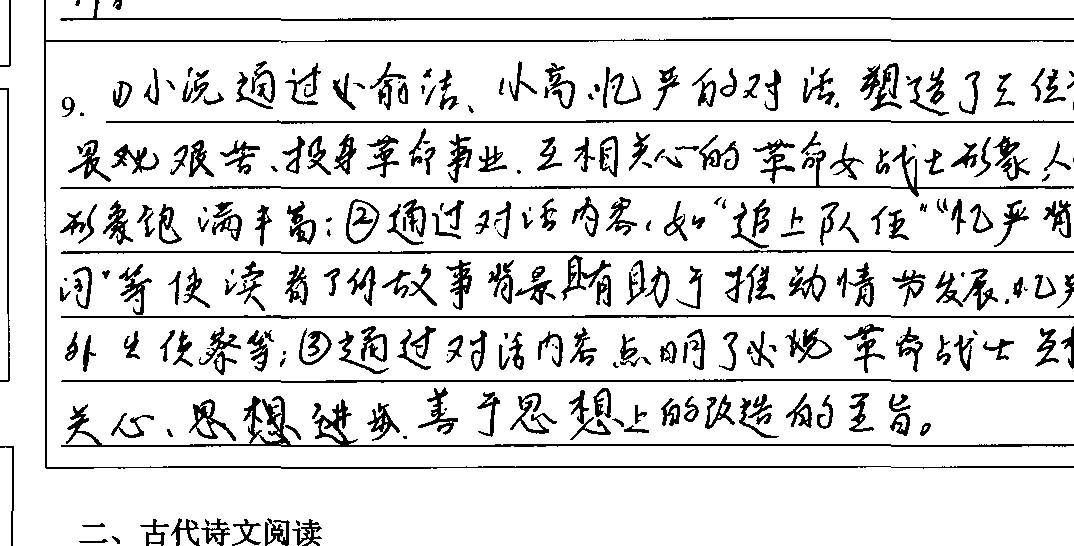 9. ①小说通过小俞洁、小高、忆严的对话,塑造了三位
畏艰艰苦、投身革命事业、互相关心的革命女战士形象,人
形象饱满丰富;②通过对话内容,如“追上队伍”“忆严
问”等使读者了解故事背景且有助于推动情节发展,忆严
外出侦察等;③通过对话内容点明了必现革命战士互相
关心、思想进步、善于思想上的改造的主旨。
二、古代诗文阅读